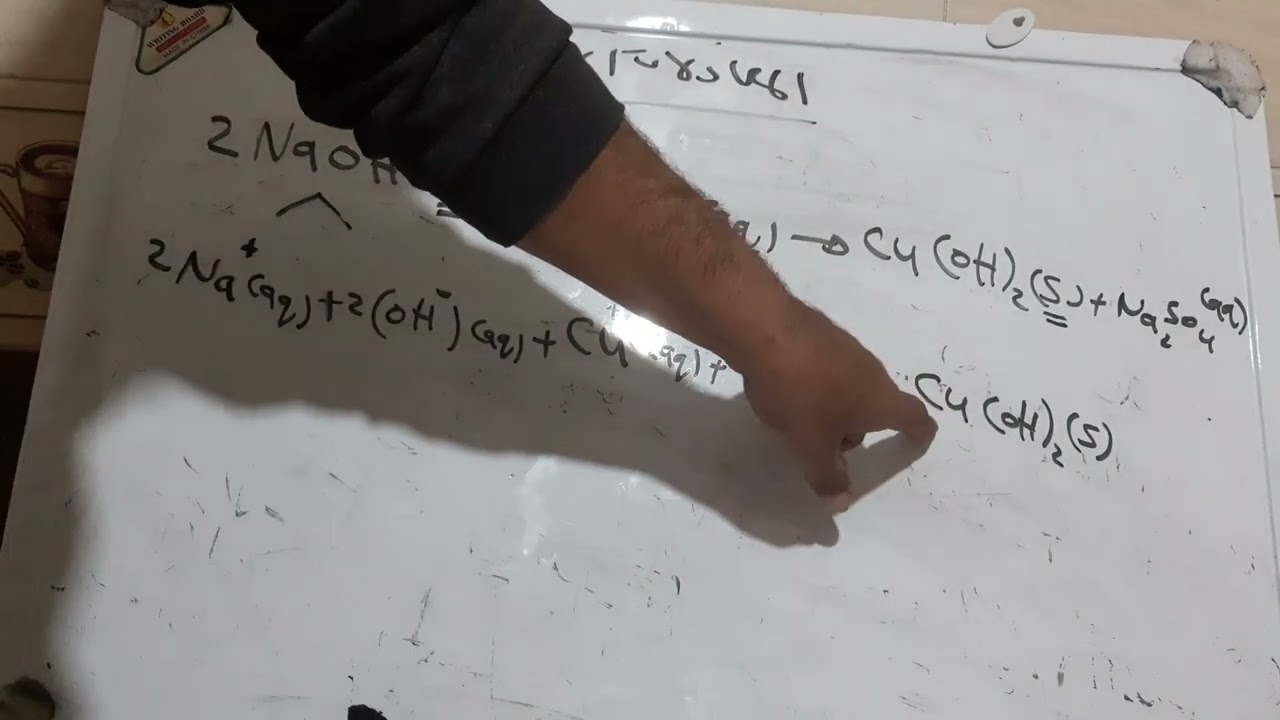 WRITING BOARD
MADE IN CHINA
2 NaOH
q) → Cu(OH)₂(S) + Na₂SO₄(aq)
2Na⁺(aq) + 2(OH⁻)(aq) + Cu⁺ aq) +
Cu(OH)₂(S)